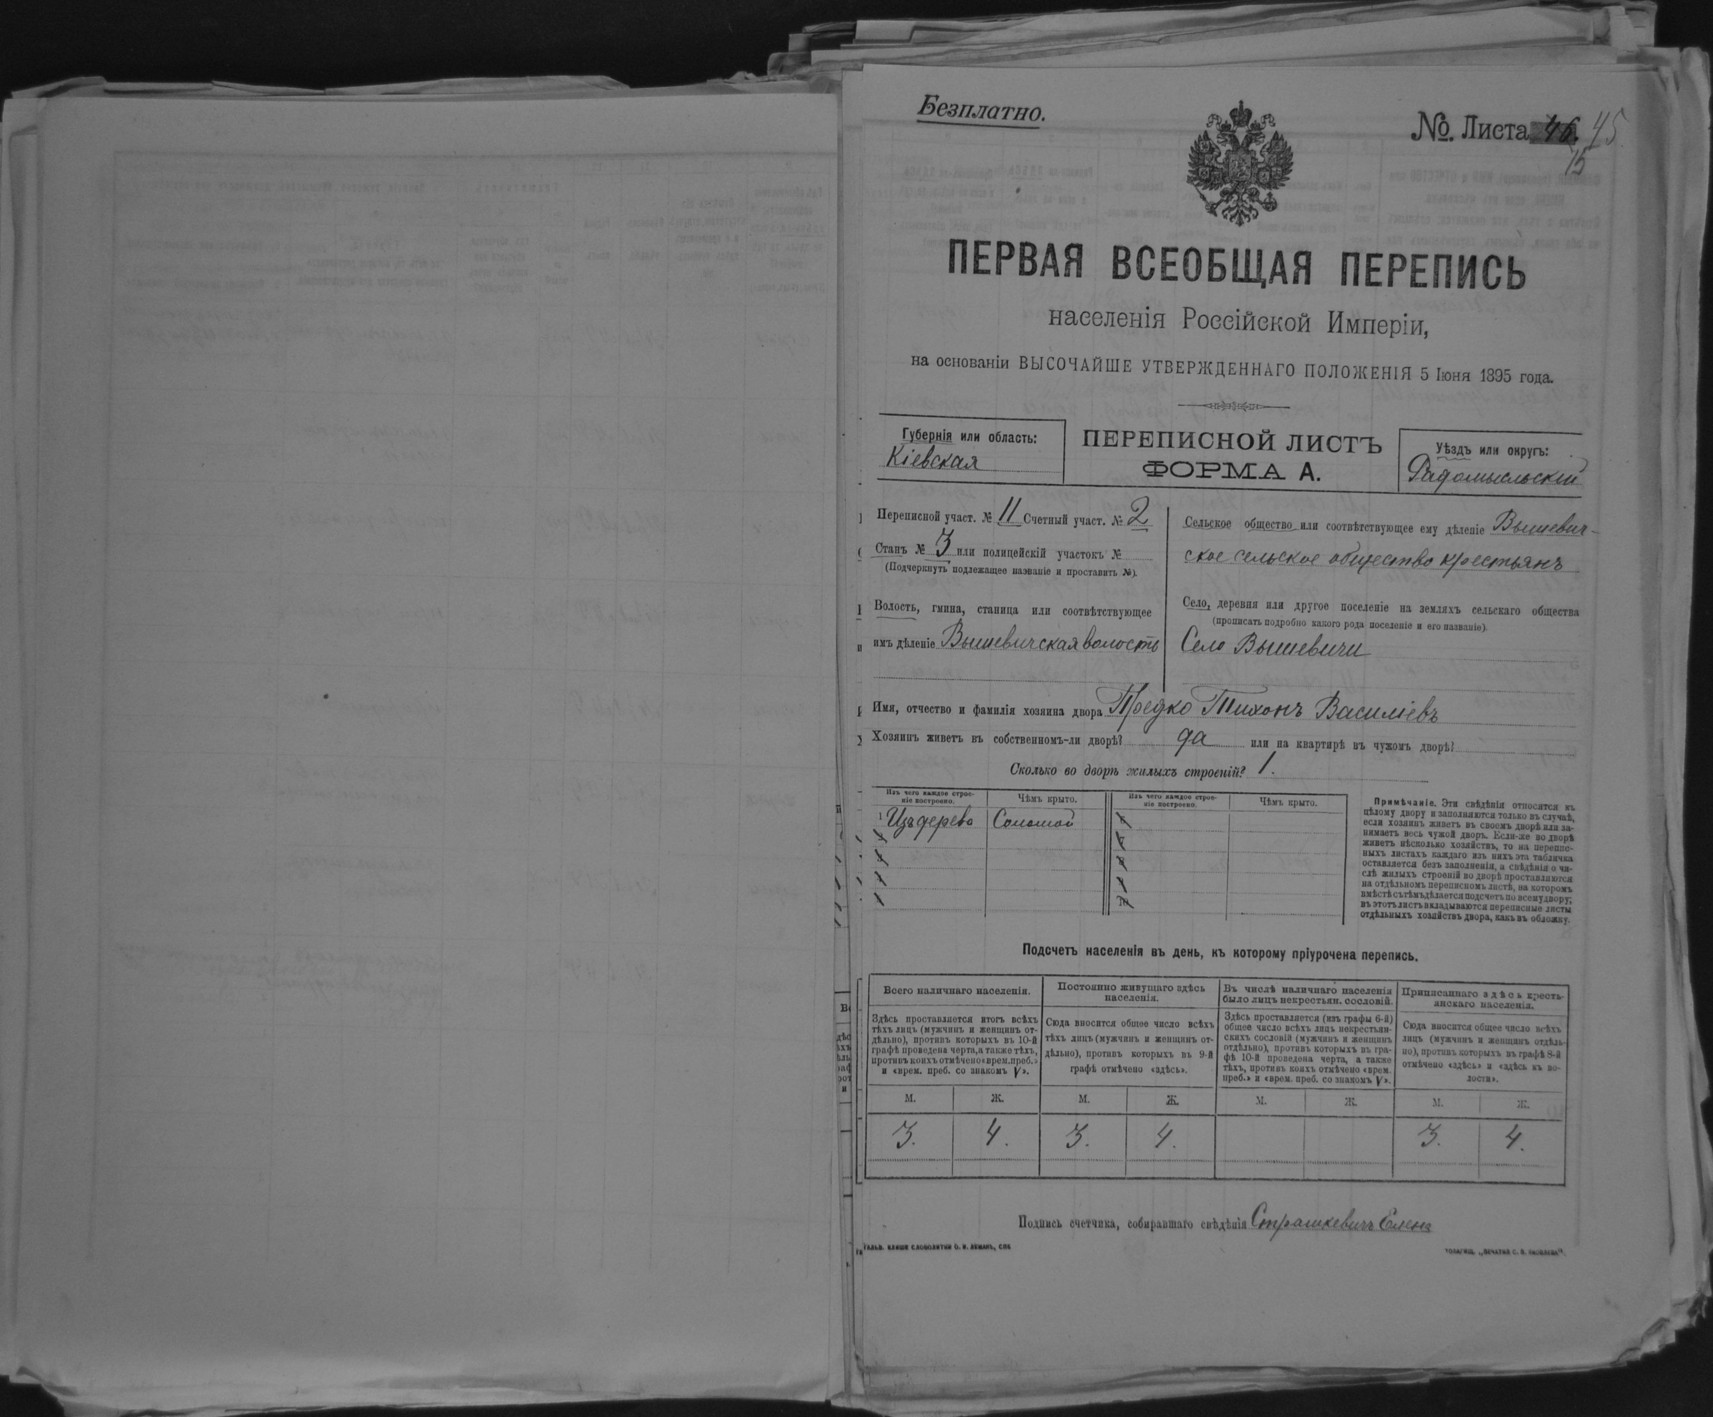 Безплатно.
№. Листа 45
15
ПЕРВАЯ ВСЕОБЩАЯ ПЕРЕПИСЬ
населенія Россійской Имперіи,
на основаніи ВЫСОЧАЙШЕ УТВЕРЖДЕННАГО ПОЛОЖЕНІЯ 5 Іюня 1895 года.
Губернія или область:
Кіевская
ПЕРЕПИСНОЙ ЛИСТЪ
ФОРМА А.
Уѣздъ или округъ:
Радомысльскій
Переписной участ. № 11 Счетный участ. № 2
Станъ № 3 или полицейскій участокъ №
(Подчеркнуть подлежащее названіе и проставить №).
Волость, гмина, станица или соотвѣтствующее
имъ дѣленіе Вышевичская волость
Сельское общество или соотвѣтствующее ему дѣленіе Вышевич-
ское сельское общество крестьянъ
Село, деревня или другое поселеніе на земляхъ сельскаго общества
(прописать подробно какого рода поселеніе и его названіе).
Село Вышевичи
Имя, отчество и фамилія хозяина двора Предко Тихонъ Василіевъ
Хозяинъ живетъ въ собственномъ-ли дворѣ? да или на квартирѣ въ чужомъ дворѣ?
Сколько во дворѣ жилыхъ строеній? 1.
Изъ чего каждое строе-
ніе построено.
Чѣмъ крыто.
Изъ чего каждое строе-
ніе построено.
Чѣмъ крыто.
1 Изъ дерева Соломой
Примѣчаніе. Эти свѣдѣнія относятся къ
цѣлому двору и заполняются только въ случаѣ,
если хозяинъ живетъ въ своемъ дворѣ или за-
нимаетъ весь чужой дворъ. Если-же во дворѣ
живетъ нѣсколько хозяйствъ, то на перепис-
ныхъ листахъ каждаго изъ нихъ эта табличка
оставляется безъ заполненія, а свѣдѣнія о чи-
слѣ жилыхъ строеній во дворѣ проставляются
на отдѣльномъ переписномъ листѣ, на которомъ
вмѣстѣ съ тѣмъ дѣлается подсчетъ по всему двору;
въ этотъ листъ вкладываются переписные листы
отдѣльныхъ хозяйствъ двора, какъ въ обложку.
Подсчетъ населенія въ день, къ которому пріурочена перепись.
Всего наличнаго населенія.
Здѣсь проставляется итогъ всѣхъ
тѣхъ лицъ (мужчинъ и женщинъ от-
дѣльно), противъ которыхъ въ 10-й
графѣ проведена черта, а также тѣхъ,
противъ коихъ отмѣчено «врем. преб.»
и «врем. преб. со знакомъ V».
Постоянно живущаго здѣсь
населенія.
Сюда вносится общее число всѣхъ
тѣхъ лицъ (мужчинъ и женщинъ от-
дѣльно), противъ которыхъ въ 9-й
графѣ отмѣчено «здѣсь».
Въ числѣ наличнаго населенія
было лицъ некрестьян. сословій.
Здѣсь проставляется (изъ графы 6-й)
общее число всѣхъ лицъ некрестьян-
скихъ сословій (мужчинъ и женщинъ
отдѣльно), противъ которыхъ въ гра-
фѣ 10-й проведена черта, а также
тѣхъ, противъ коихъ отмѣчено «врем.
преб.» и «врем. преб. со знакомъ V».
Приписаннаго здѣсь кресть-
янскаго населенія.
Сюда вносится общее число всѣхъ
лицъ (мужчинъ и женщинъ отдѣль-
но), противъ которыхъ въ графѣ 8-й
отмѣчено «здѣсь» и «здѣсь въ во-
лости».
М. Ж. М. Ж. М. Ж. М. Ж.
3. 4. 3. 4. 3. 4.
Подпись счетчика, собиравшаго свѣдѣнія